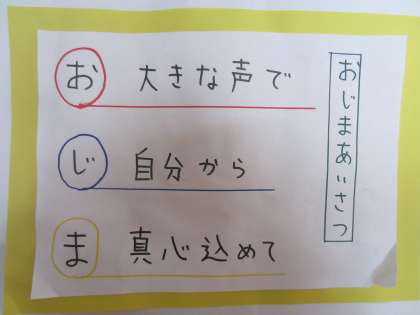 おじまあいさつ
お 大きな声で
じ 自分から
ま 真心込めて